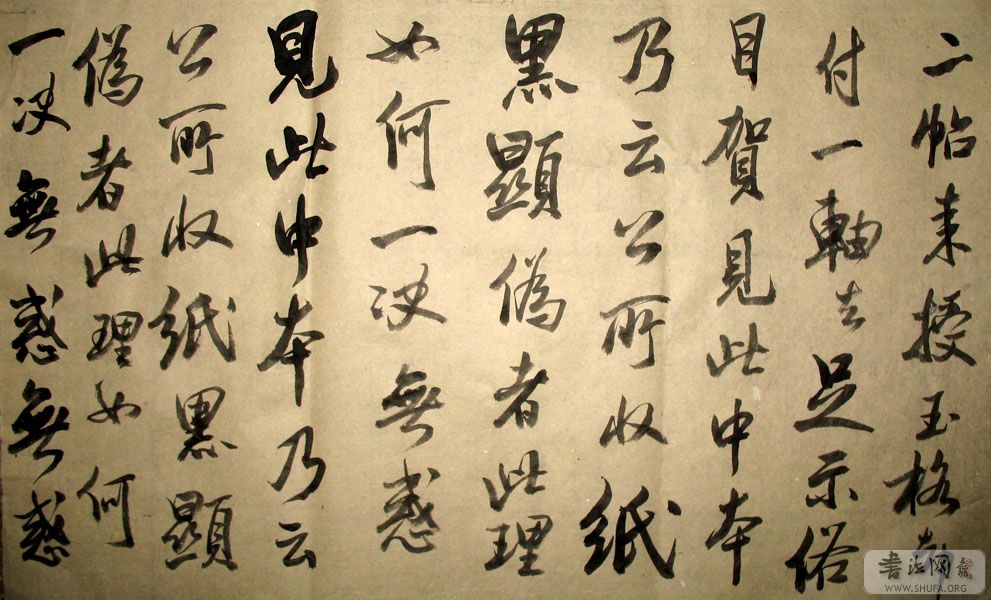 二帖来授玉格
付一軸去足示俗
目賀見此中本
乃云公所收紙
黑顯偽者此理
如何一决無惑
見此中本乃云
公所收紙黑顯
偽者此理如何
一决無惑無惑
書法网
WWW.SHUFA.ORG